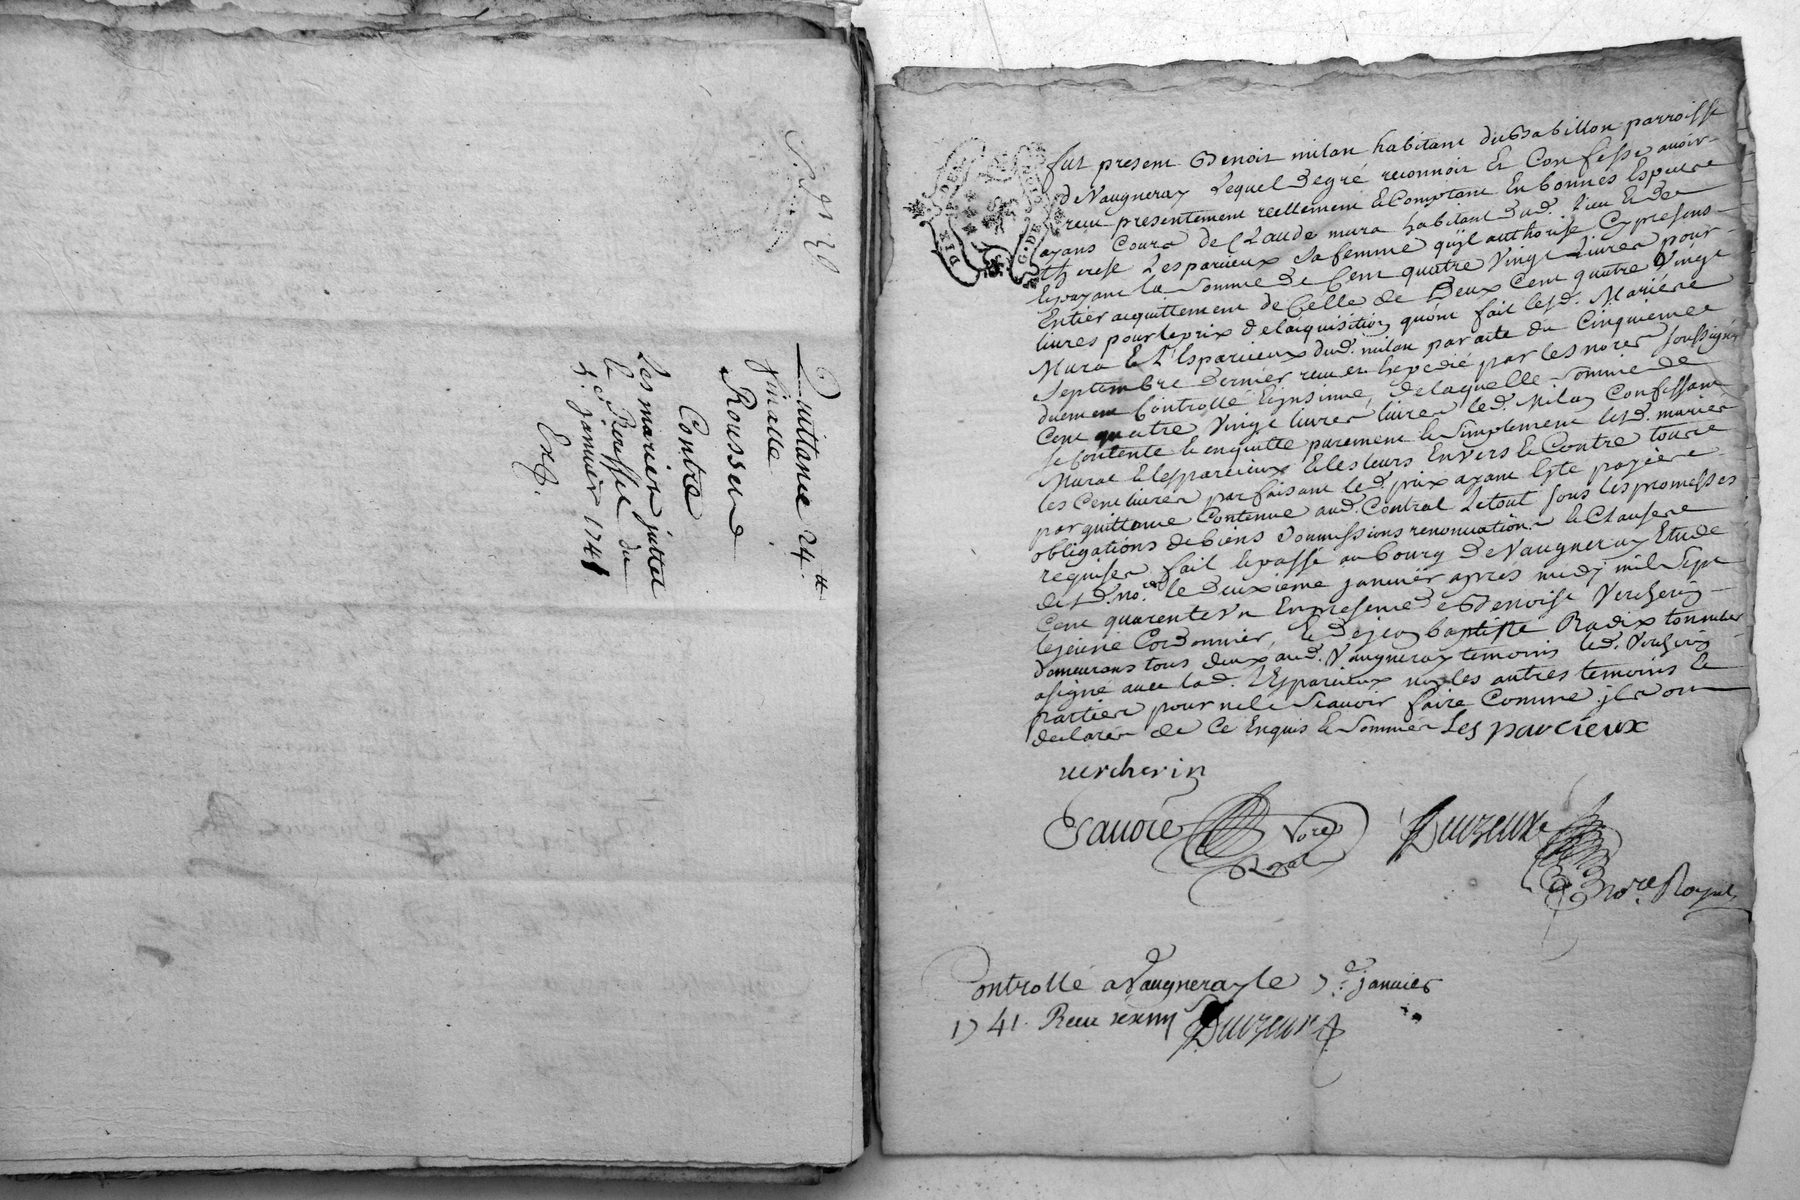 Quittance 24.tt
finalle
Rousset
Contre
Les mariés juttet
le Bresse du
5.e janvier 1741
Exp.
fut present Benoit milan habitant du Babillon parroisse
de Vaugneray Lequel de gré reconnoit Et Confesse avoir
recu presentement reellement & Comptant En bonnes Especes
ayans Cours de Claude mura habitant dud. lieu & de
therese Lesparcieux sa femme quyl authorise Cy presens
& payant la somme de Cent quatre Vingt Livres pour
Entier acquittement de Celle de Deux Cent quatre Vingt
livres pour le prix de laquisition quont fait lesd. Mariés
Mura & L'Esparcieux dud. milan par acte du Cinquieme
Septembre dernier recu en Expedié par les nores soussignés
duement Controllé & insinué, de laquelle somme de
Cent quatre Vingt livres livres led. Milan Confessant
se Contente & en quitte purement & simplement lesd. mariés
Murat & lesparcieux & les leurs Envers & Contre tous
les Cent livres parfaisant led. prix ayant Esté payées
par quittance Contenue aud. Contrat Le tout sous les promesses
obligations de biens soumissions renonciations & Clauses
requises fait & passé au bourg de Vaugneray Etude
desd. no.res le deuxieme janvier après midy mil sept
Cent quarente Un En presence de Benoist Vercherin
le jeune Cordonnier, & de jean baptiste Radix tonnelier
demeurans tous deux aud. Vaugneray temoins led. Vercherin
a signé avec lad. L'Esparcieux non les autres temoins &
parties pour ne le scavoir faire Comme jls ont
declarés de Ce Enquis & sommés Les parcieux
vercherin
Nore
Royal
Duvzeux
nore Royal
Controllé a Vaugneray le 5.e janvier
1741. Recu
Duvzeux